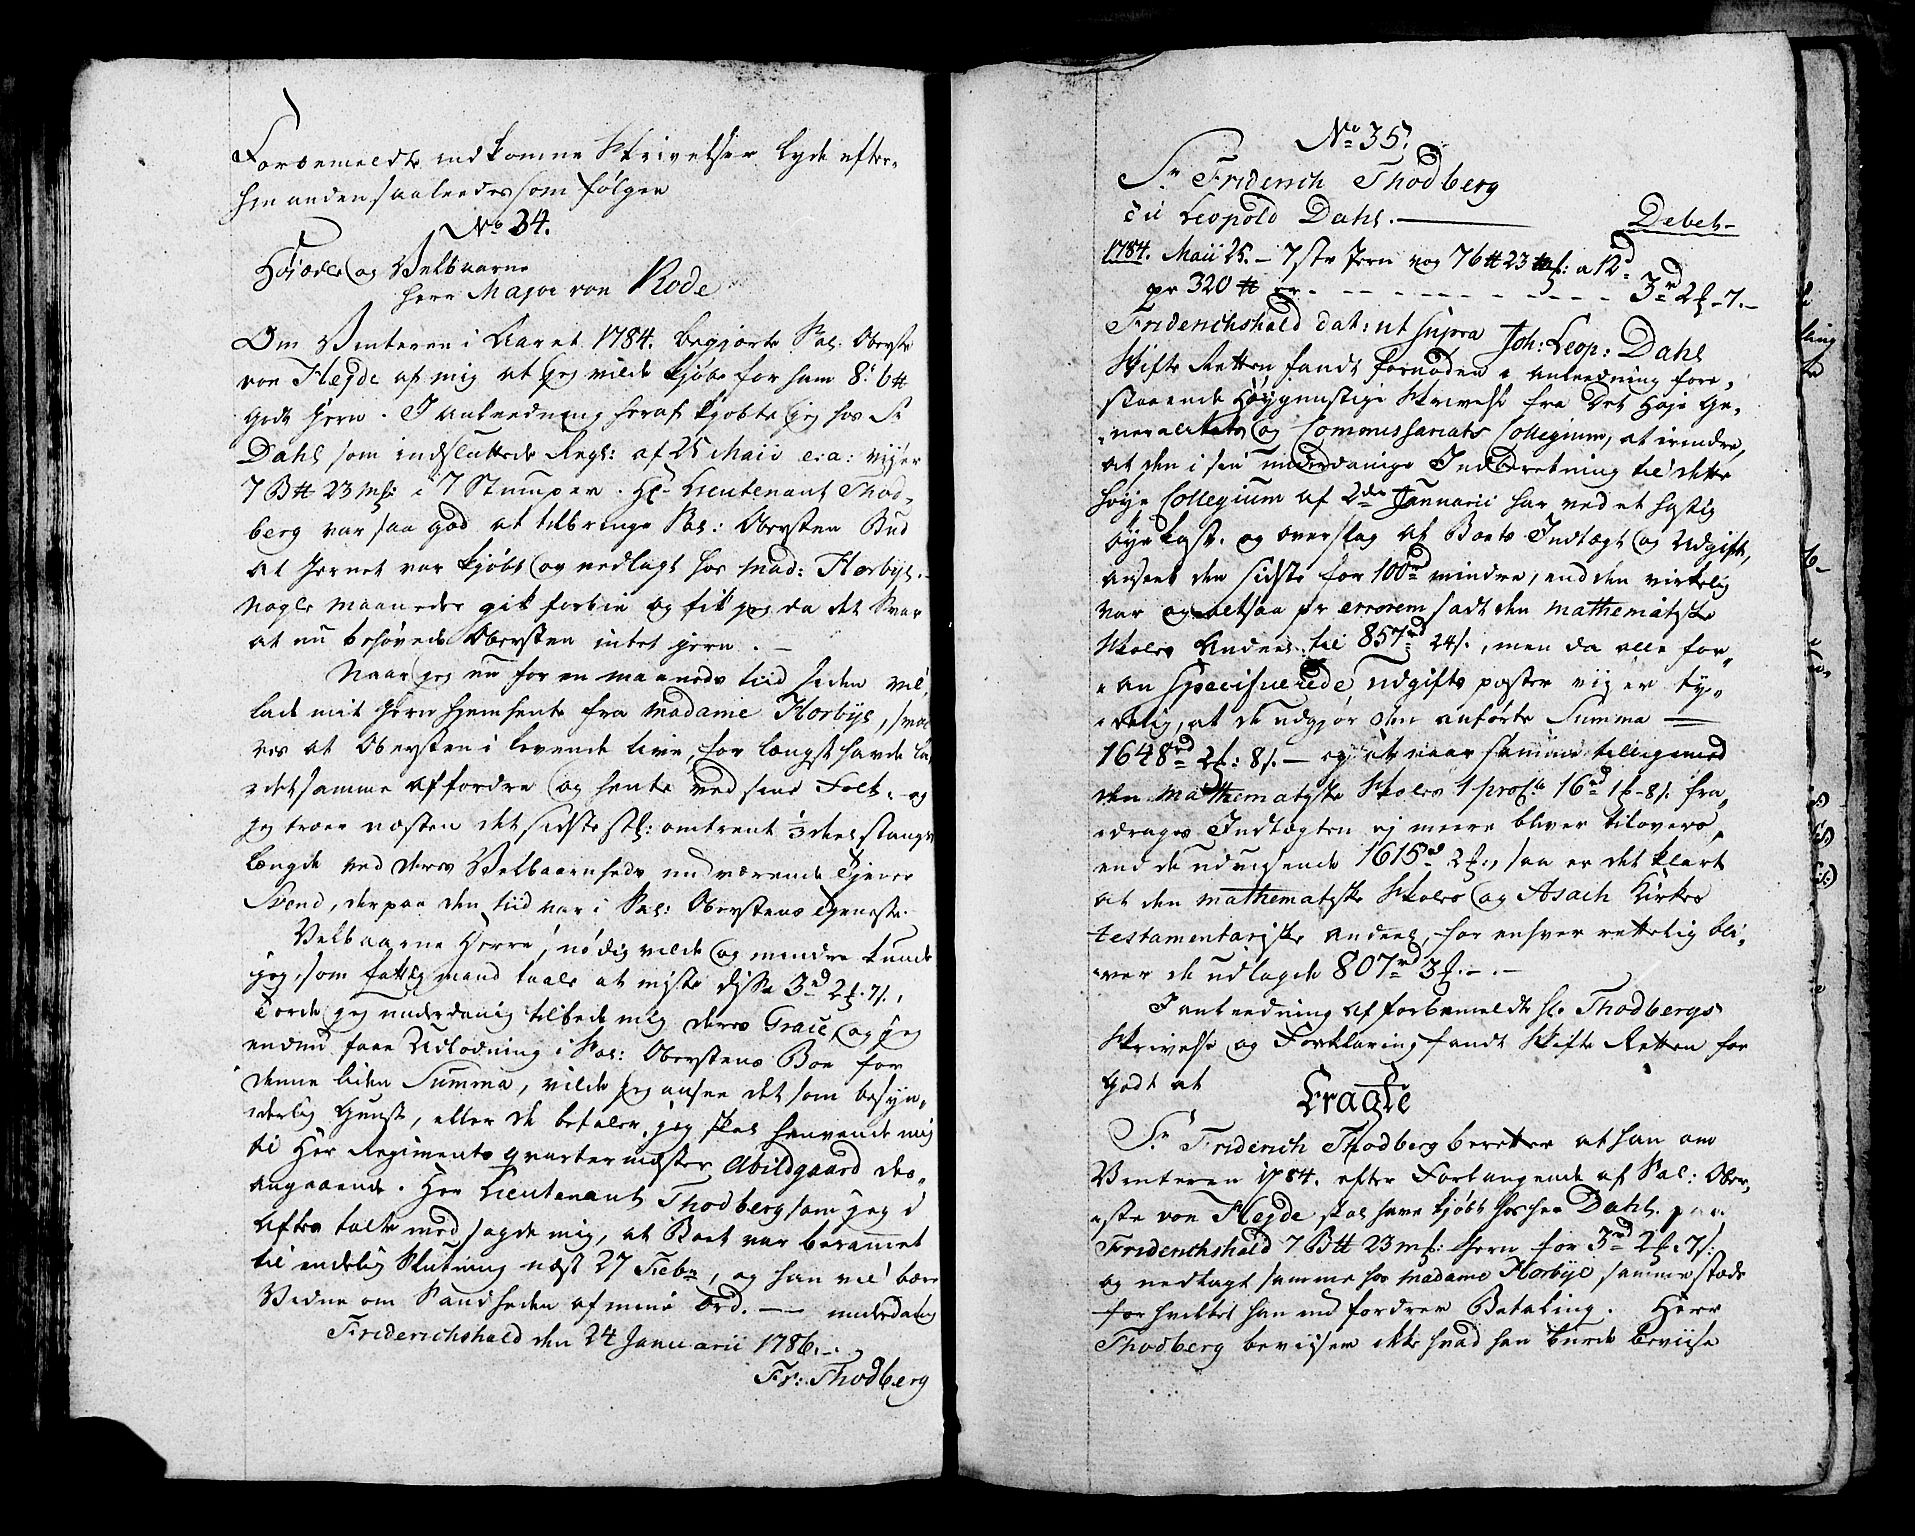 Forbemeldte indkomne Skrivelser lyde efter-
hinanden saaledes som følger
No 34.
Høiædle og Velbaarne
Herr Major von Rode
Om Vinteren i Aaret 1784. begjorte Sal: Oberste
von Hejde af mig at jeg vilde kjøbe for ham 8 b℔
godt Jern. I anleedning heraf kjøbte jeg hos Sr
Dahl som indsluttede Regl: af 25 Maii e: a: viiser
7 B℔ 23 mk: i 7 Stumper. Hr Lieutenant Thod-
berg var saa god at tilbringe Sal: Obersten Bud
at Jernet var kjøbt og nedlagt hos Mad: Horbye.
Nogle Maaneder gik forbie og fik jeg da det Svar
at nu behøvede Obersten intet Jern. -
Naar jeg nu for en Maaneds tiid siden vil
lade mit Jern hjemhente fra Madame Horbye, svar
res at Obersten i levende live, for længst havde la
det samme affordre og hente ved sine Folk, og
jeg troer næsten det sidste st: omtrent 1/3 deel stangs
længde ved deres Velbaarenheds nuværende Tjener
Svend, der paa den tiid var i Sal: Oberstens Tjeneste.
Velbaarne Herre, nødig vilde og mindre kunde
jeg, som fattig mand taale at miste disse 3rd 2 7s.,
Torde jeg underdanig tilbede mig deres Grace, og jeg
endnu faae Udlodning i Sal: Oberstens Boe for
denne liden Summa, vilde jeg ansee det som besyn-
derlig Gunst, eller De befaler, jeg skal henvende mig
til Herr Regiments Qvarteermester Abildgaard des-
angaaende. Herr Lieutenant Thodberg som jeg i
Aftes talte med sagde mig, at Boet var berammet
til endelig Slutning næst 27 Febr, og han vil bære
Vidne om Sandheden af mine Ord. - underdanig
Friderichshald den 24 Januarii 1786.
Fr: Thodberg
No 35.
Sr Friderich Thodberg
til Leopold Dahl. Debet-
1784. Maii 25. - 7 ste Jern vog 7 b℔ 23 mk: a 12d
pr 320 ℔ er - - - - - - - - - 3rd 2 - 7. -
Friderichshald dat: ut supra Joh: Leop: Dahl
Skifte Retten fandt fornøden i anleedning fore-
staaende Høygunstige Skrivelse fra Det Høje Ge-
neralitets og Commissariats Collegium, at erindre,
at den i sin underdanige Indberetning til dette
høye Collegium af 2den Januarii har ved et hastig
øyekast og overslag af Boets Indtægt og Udgift,
anseet den sidste for 100rd mindre, end den virkelig
var og altsaa pr errorem sadt den mathematiske
Skoles Andeel til 857rd 24s., men da alle for-
an Specificerede udgifts poster viiser ty-
delig, at de udgjør den anførte Summa
1648rd 2: 8s. - og at naar samme tilligemed
den Mathematiske Skoles 1 proCto 16rd 1 - 8s. fra-
drages Indtægten ej meere bliver tilovers,
end de udvisende 1615rd 2:, saa er det klart
at den mathematiske Skoles og Asach Kirkes
testamentariske Andeel, for enhver rettelig bli-
ver de udlagde 807rd 3. - . -
I anleedning af forbemeldte Hr. Thodbergs
Skrivelse og Forklaring fandt Skifte Retten for
godt at
Eragte
Sr Friderich Thodberg beretter at han om
Vinteren 1784. efter Forlangende af Sal: Ober-
ste von Hejde skal have kjøbt hos Herr Dahl paa
Friderichshald 7 B℔ 23 mk: Jern for 3rd 2 7s.
og nedlagt samme hos Madame Horbye sammestæds
for hvilket han nu fordrer Betaling. Herr
Thodberg beviiser ikke hvad han burde beviise